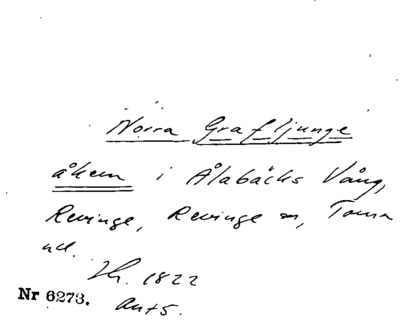 Norra Grafljunge
åkern i Ålabäcks Vång,
Revinge, Revinge sn, Torna
hd.
1822
Nr 6273. Ant 5.